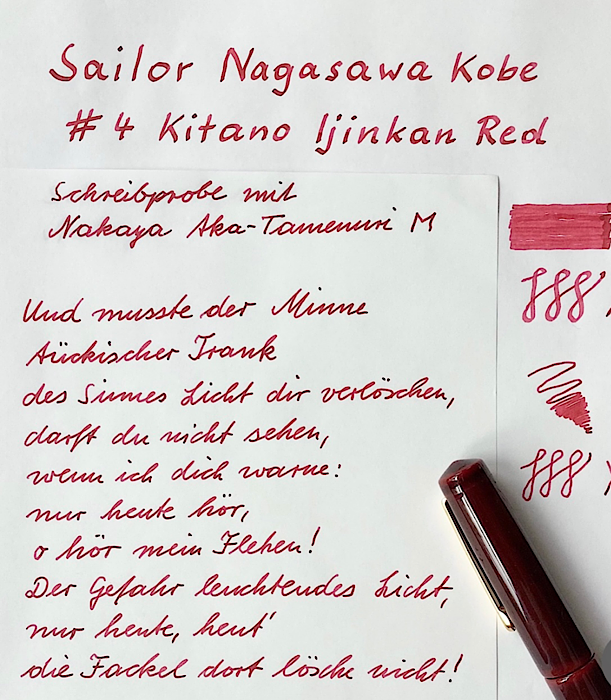 Sailor Nagasawa Kobe
#4 Kitano Ijinkan Red
Schreibprobe mit
Nakaya Aka-Tamenuri M
Und musste der Minne
tückischer Trank
des Sinnes Licht dir verlöschen,
darfst du nicht sehen,
wenn ich dich warne:
nur heute hör,
o hör mein Flehen!
Der Gefahr leuchtendes Licht,
nur heute, heut'
die Fackel dort lösche nicht!